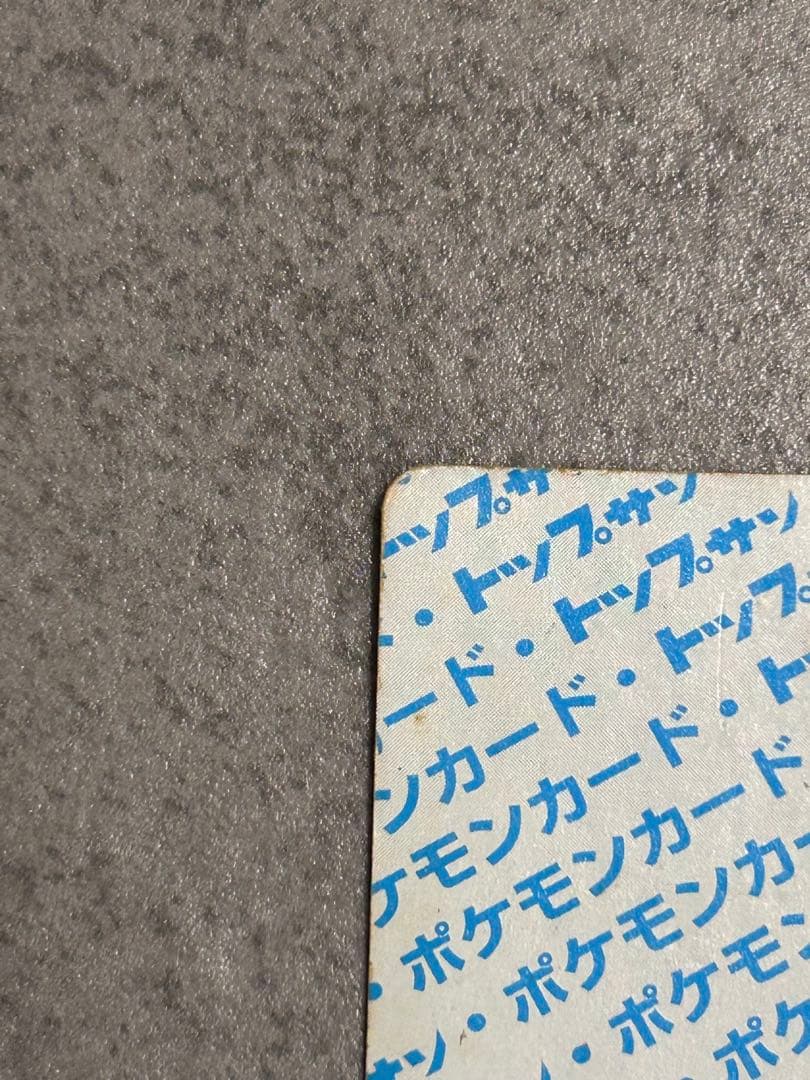 トップサ
・トップサン
ード・トップサン
ンカード・トップ
ケモンカード・ト
・ポケモンカード
サン・ポケモンカー
・ポケモン
ポケ